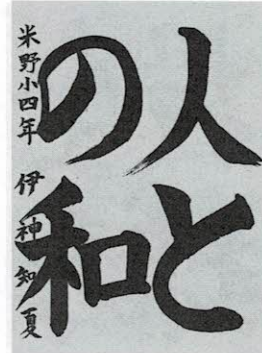 人と
の和
米野小四年 伊神知夏